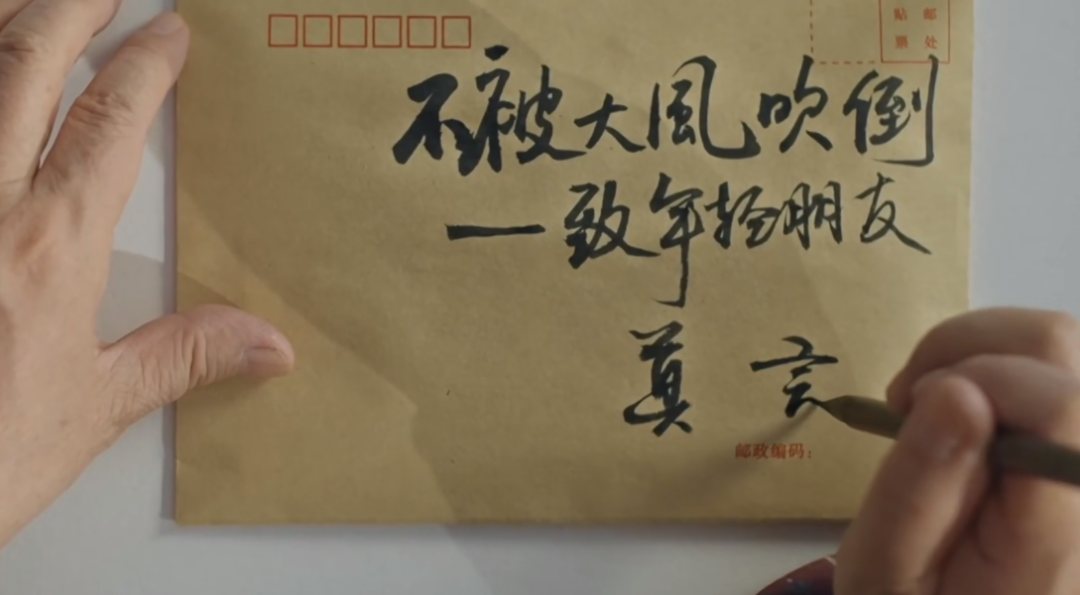 贴 邮
票 处
不被大風吹倒
一致年轻朋友
莫言
邮政编码: